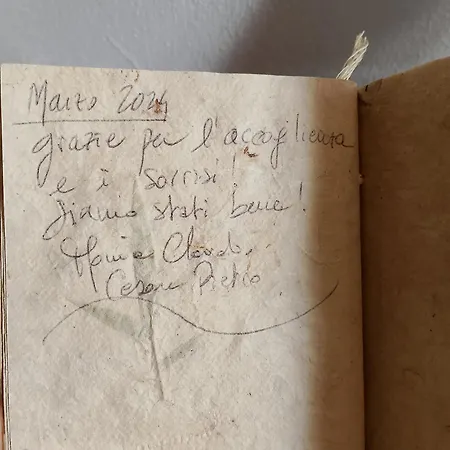 Marzo 2024
grazie per l'accoglienza
e i sorrisi!
Siamo stati bene!
Maria Claudia,
Cesare Pietro